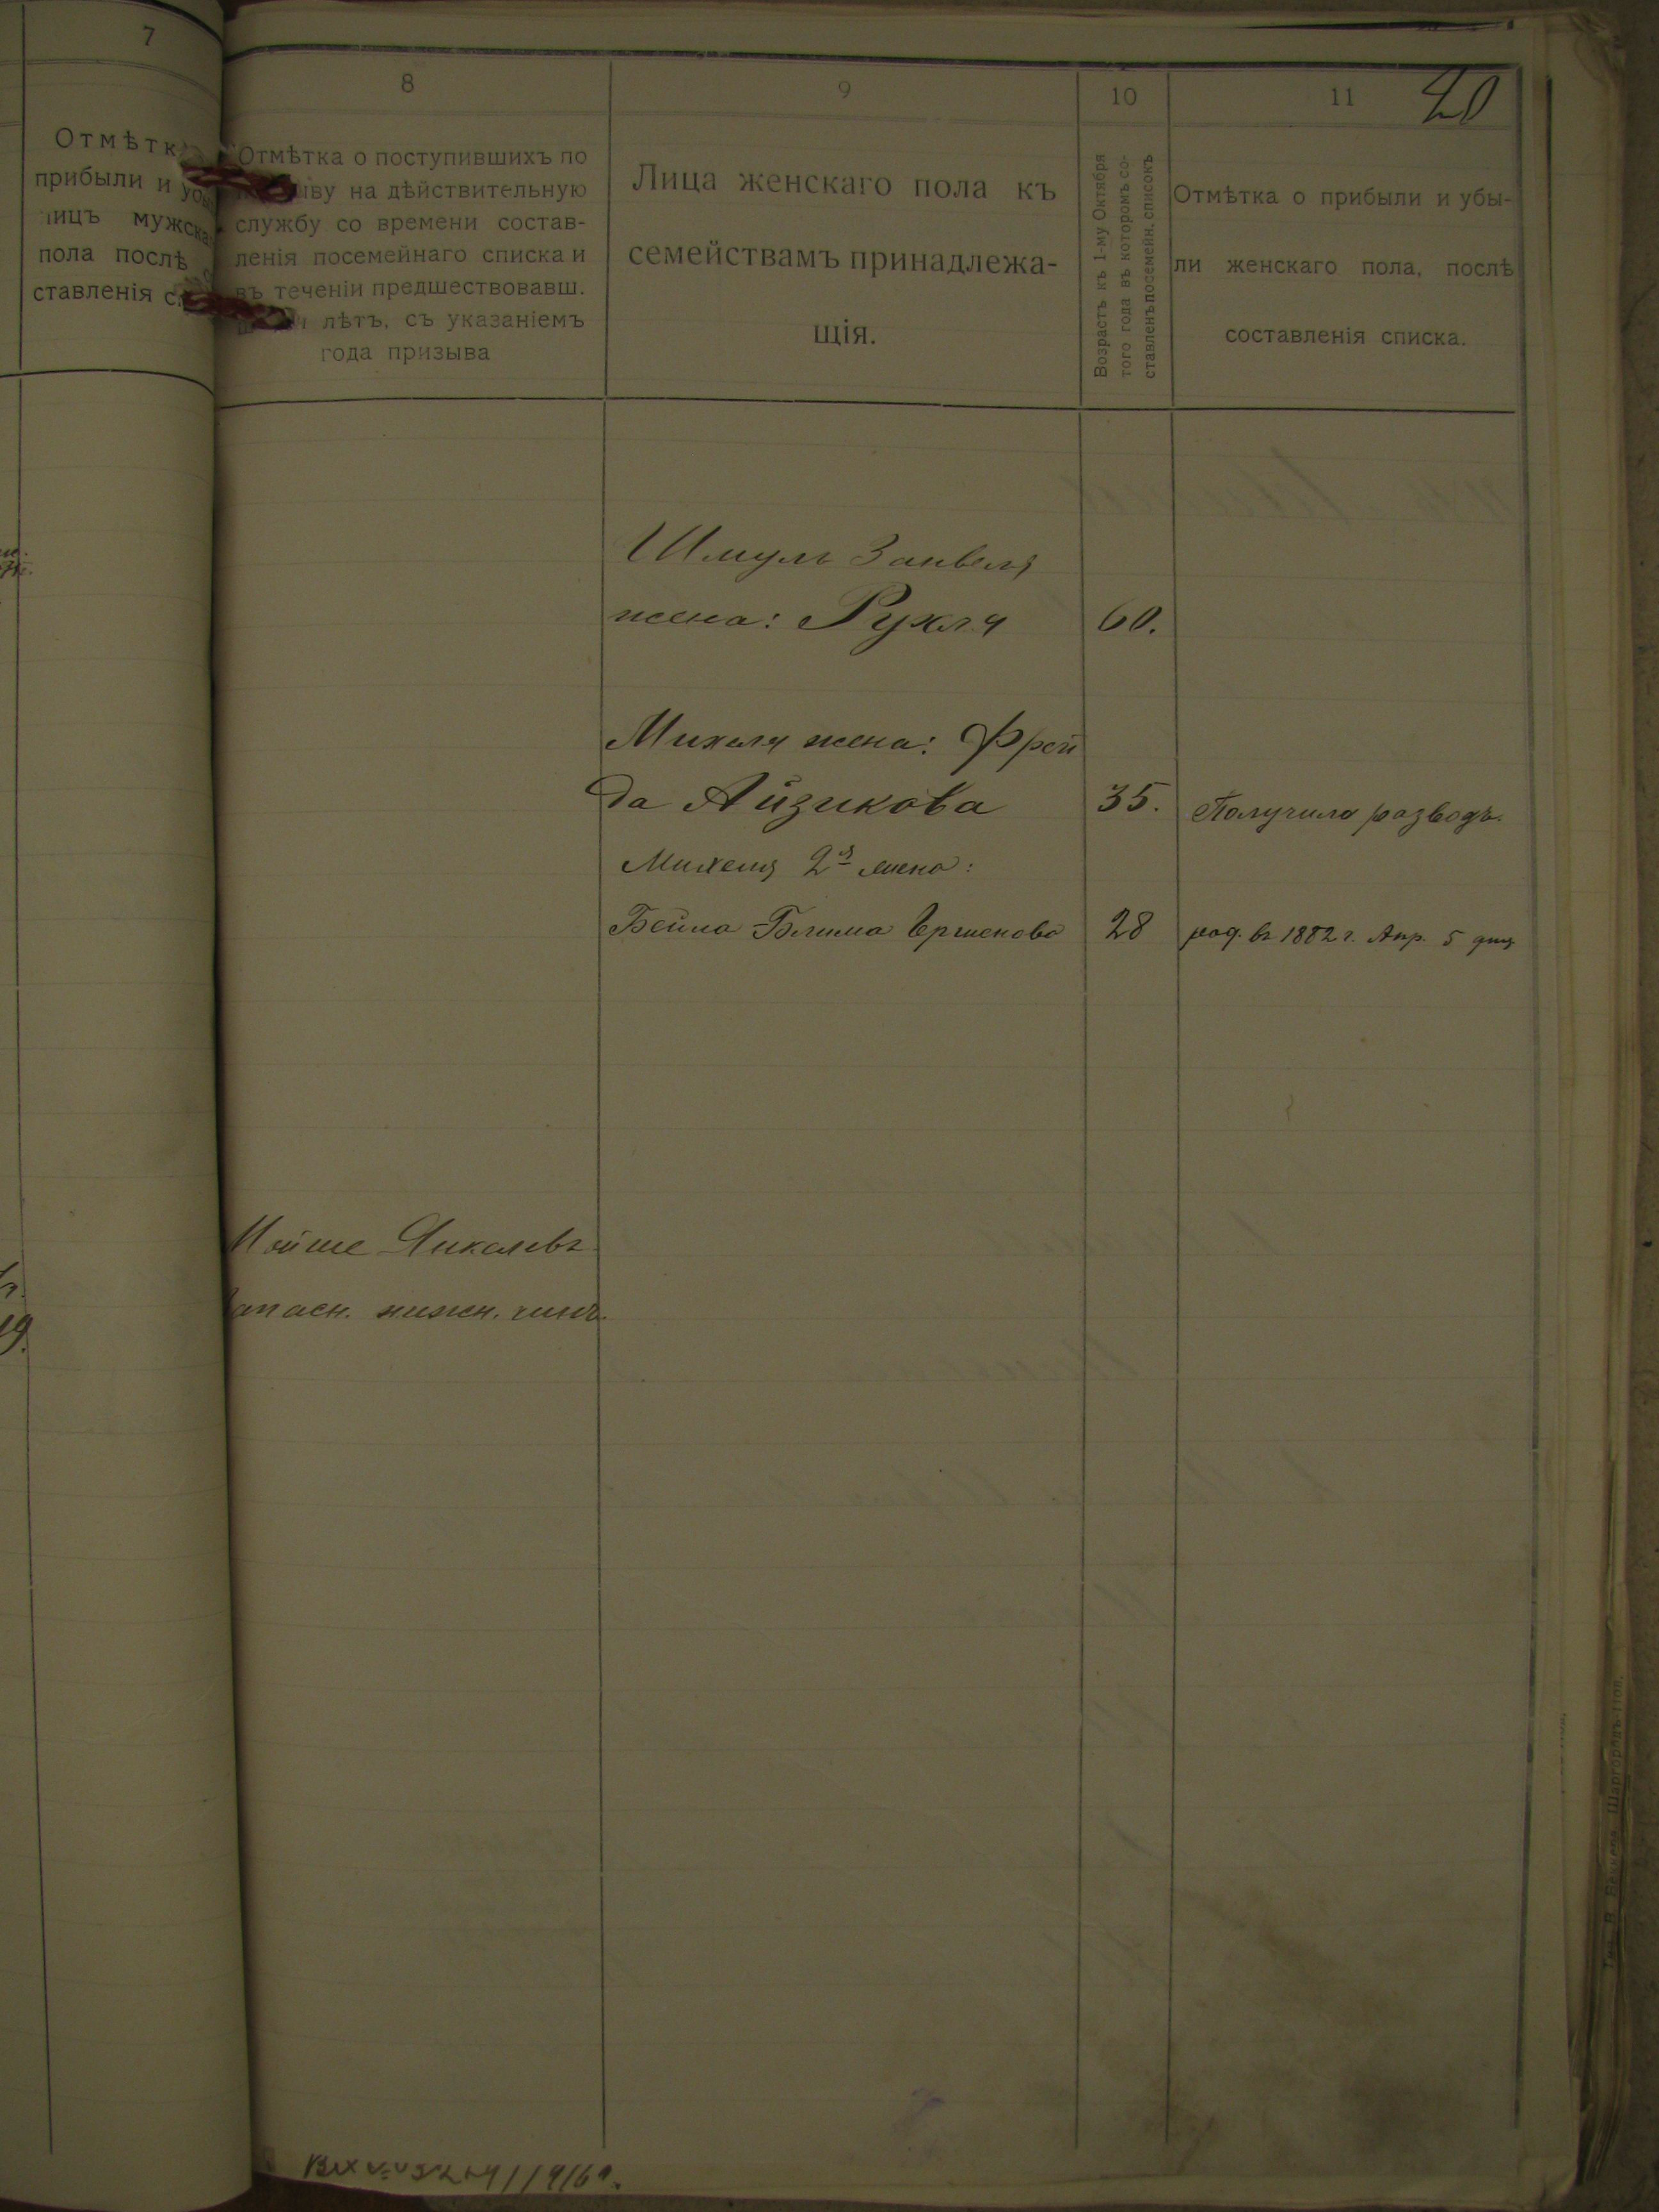 7
Отмѣтк
прибыли и убы
лицъ мужска
пола послѣ
ставленія с
8
Отмѣтка о поступившихъ по
на дѣйствительную
службу со времени состав-
ленія посемейнаго списка и
въ теченіи предшествовавш.
лѣтъ, съ указаніемъ
года призыва
9
Лица женскаго пола къ
семействамъ принадлежа-
щія.
10
Возрастъ къ 1-му Октября
того года въ которомъ со-
ставленъ посемейн. списокъ
11
20
Отмѣтка о прибыли и убы-
ли женскаго пола, послѣ
составленія списка.
Шмуль Занвеля
жена: Рухля 60.
Михеля жена: Фрей
да Айзикова 35. Получила разводъ.
Михеля 2я жена:
Бейла Блима 28 род. въ 1882 г. Апр. 5 дня
Мойше Янкелевъ
запасн. нижн. чинъ.